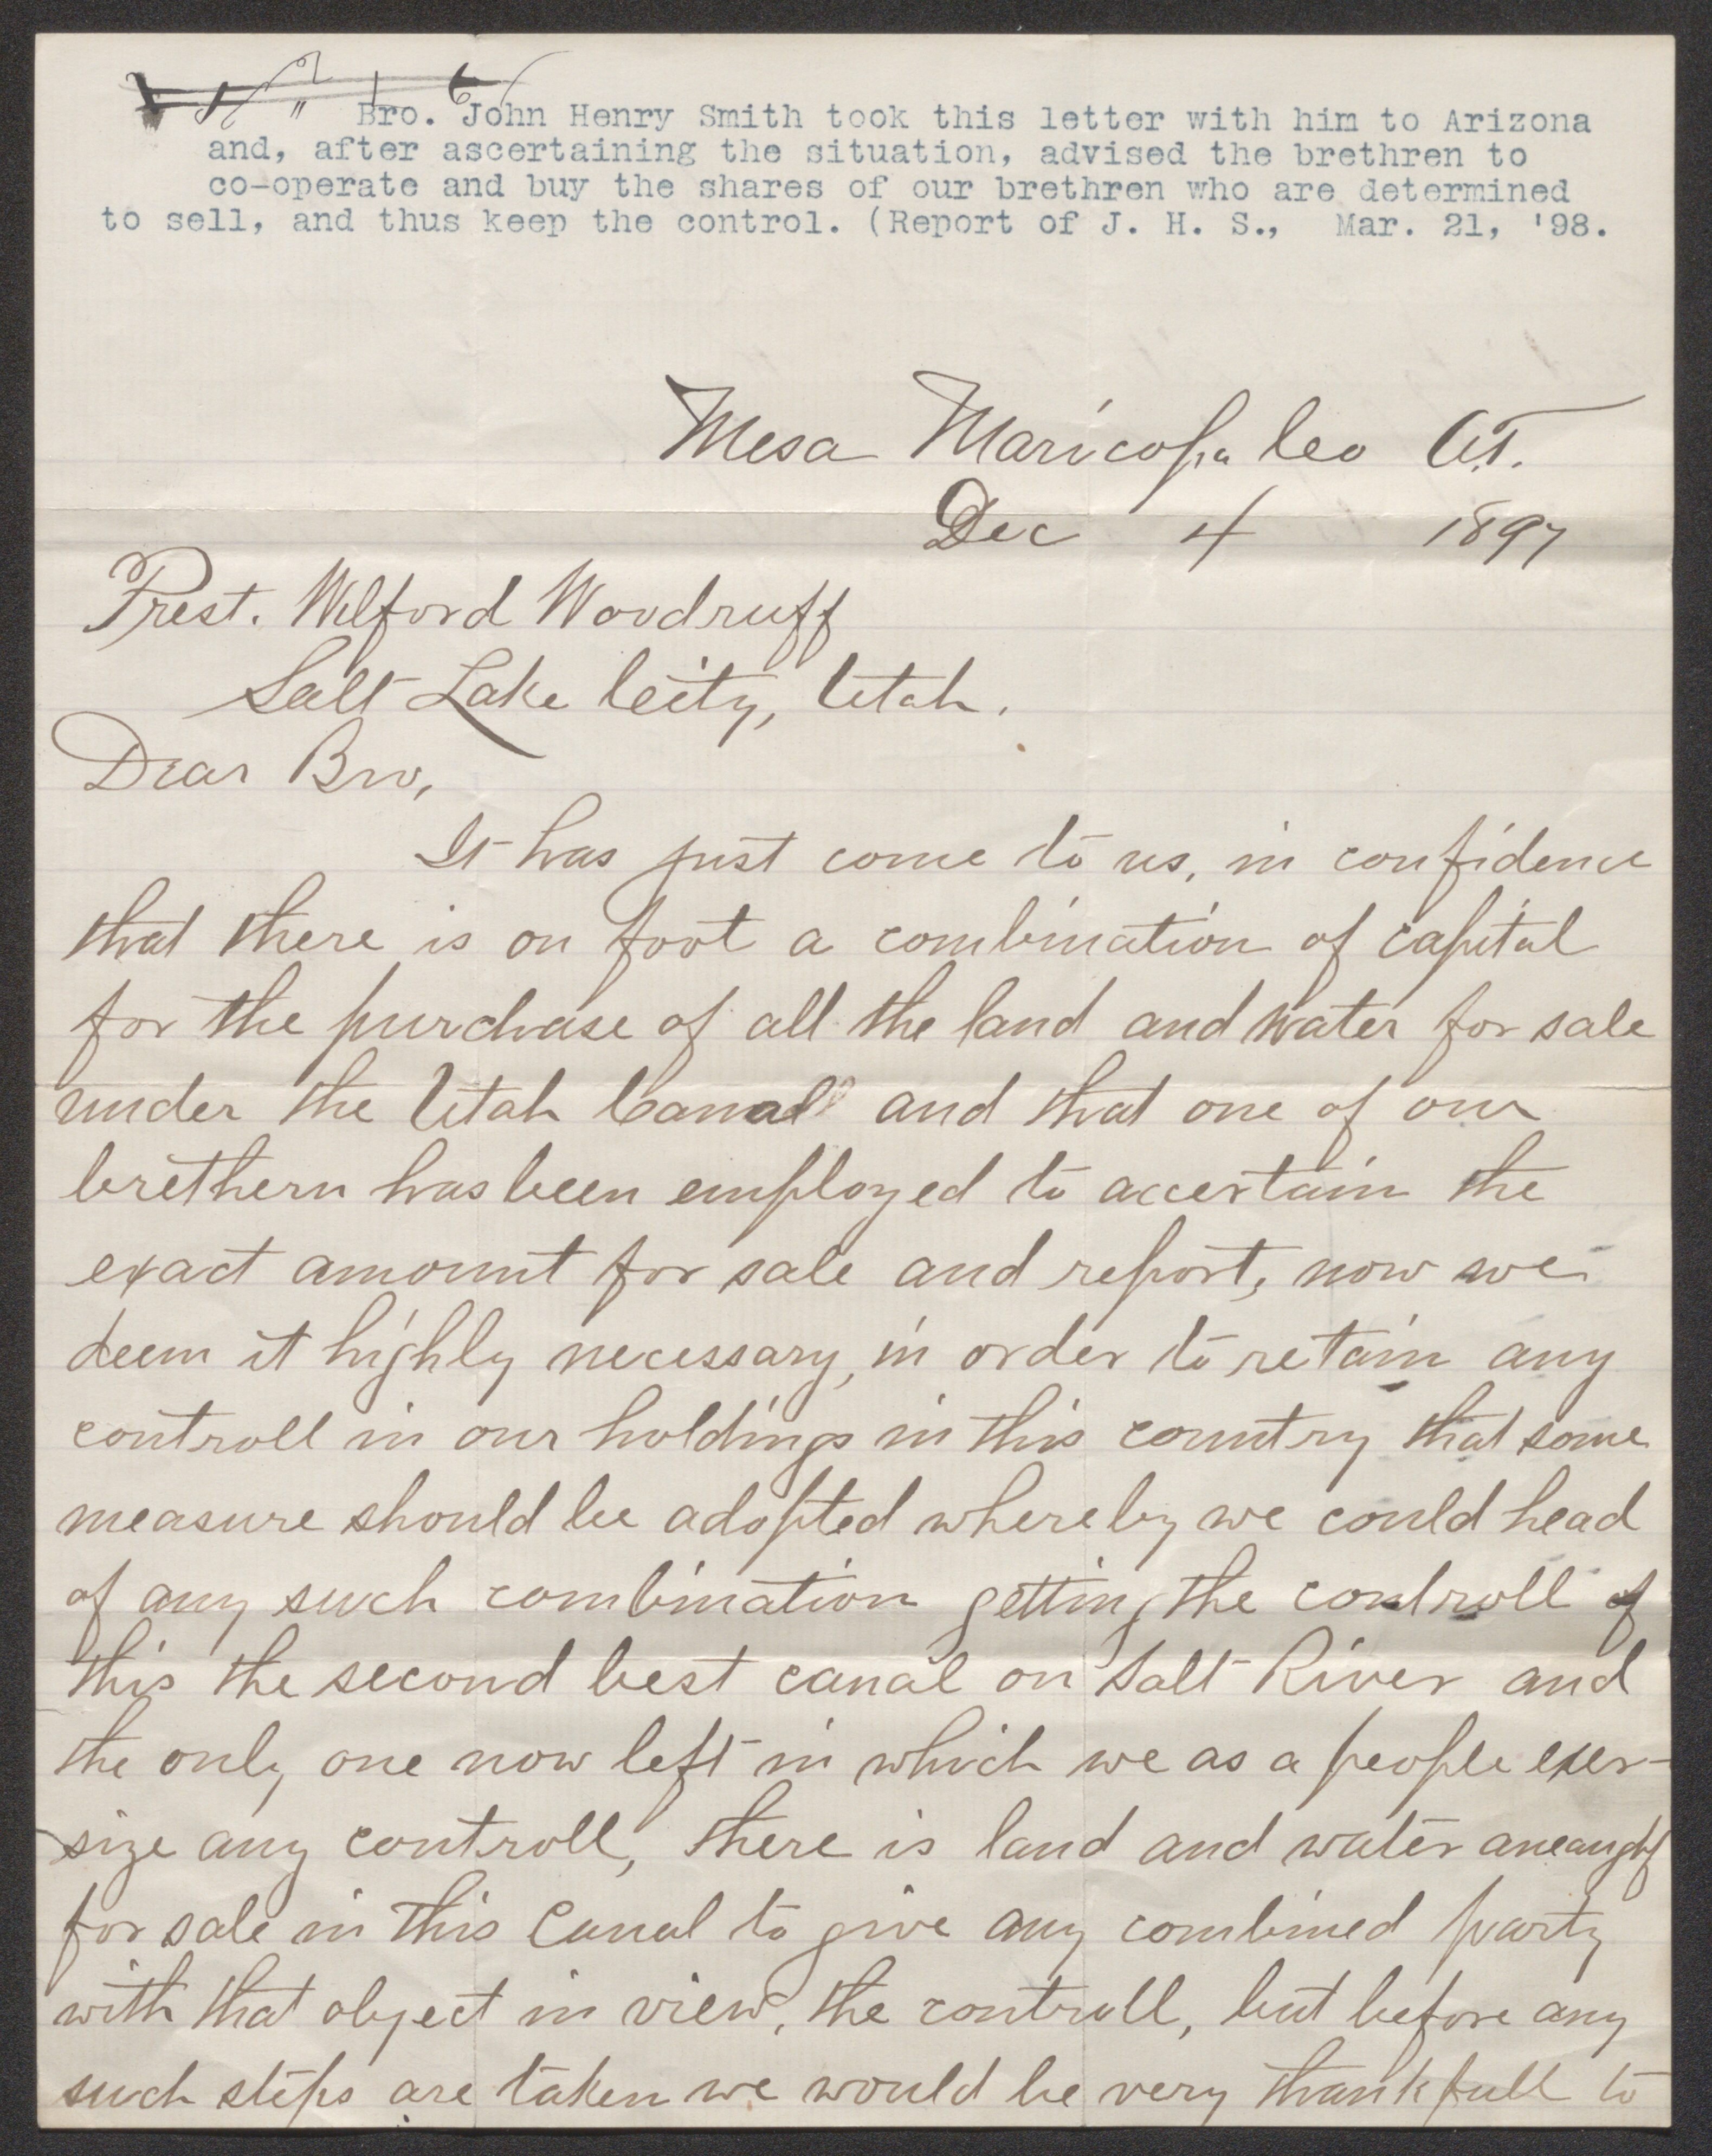 Bro. John Henry Smith took this letter with him to Arizona
and, after ascertaining the situation, advised the brethren to
co-operate and buy the shares of our brethren who are determined
to sell, and thus keep the control. (Report of J. H. S., Mar. 21, '98.
Mesa Maricopa Co A.T.
Dec 4 1897
Prest. Wilford Woodruff
Salt Lake City, Utah.
Dear Bro,
It has just come to us, in confidence
that there is on foot a combination of capital
for the purchase of all the land and water for sale
under the Utah Canal and that one of our
brethern has been employed to accertain the
exact amount for sale and report, now we
deem it highly necessary, in order to retain any
controll in our holdings in this country that some
measure should be adopted whereby we could head
of any such combination getting the controll of
this the second best canal on Salt River and
the only one now left in which we as a people exer-
size any controll, there is land and water aneaugh
for sale in this Canal to give any combined party
with that object in view, the controll, but before any
such steps are taken we would be very thankfull to